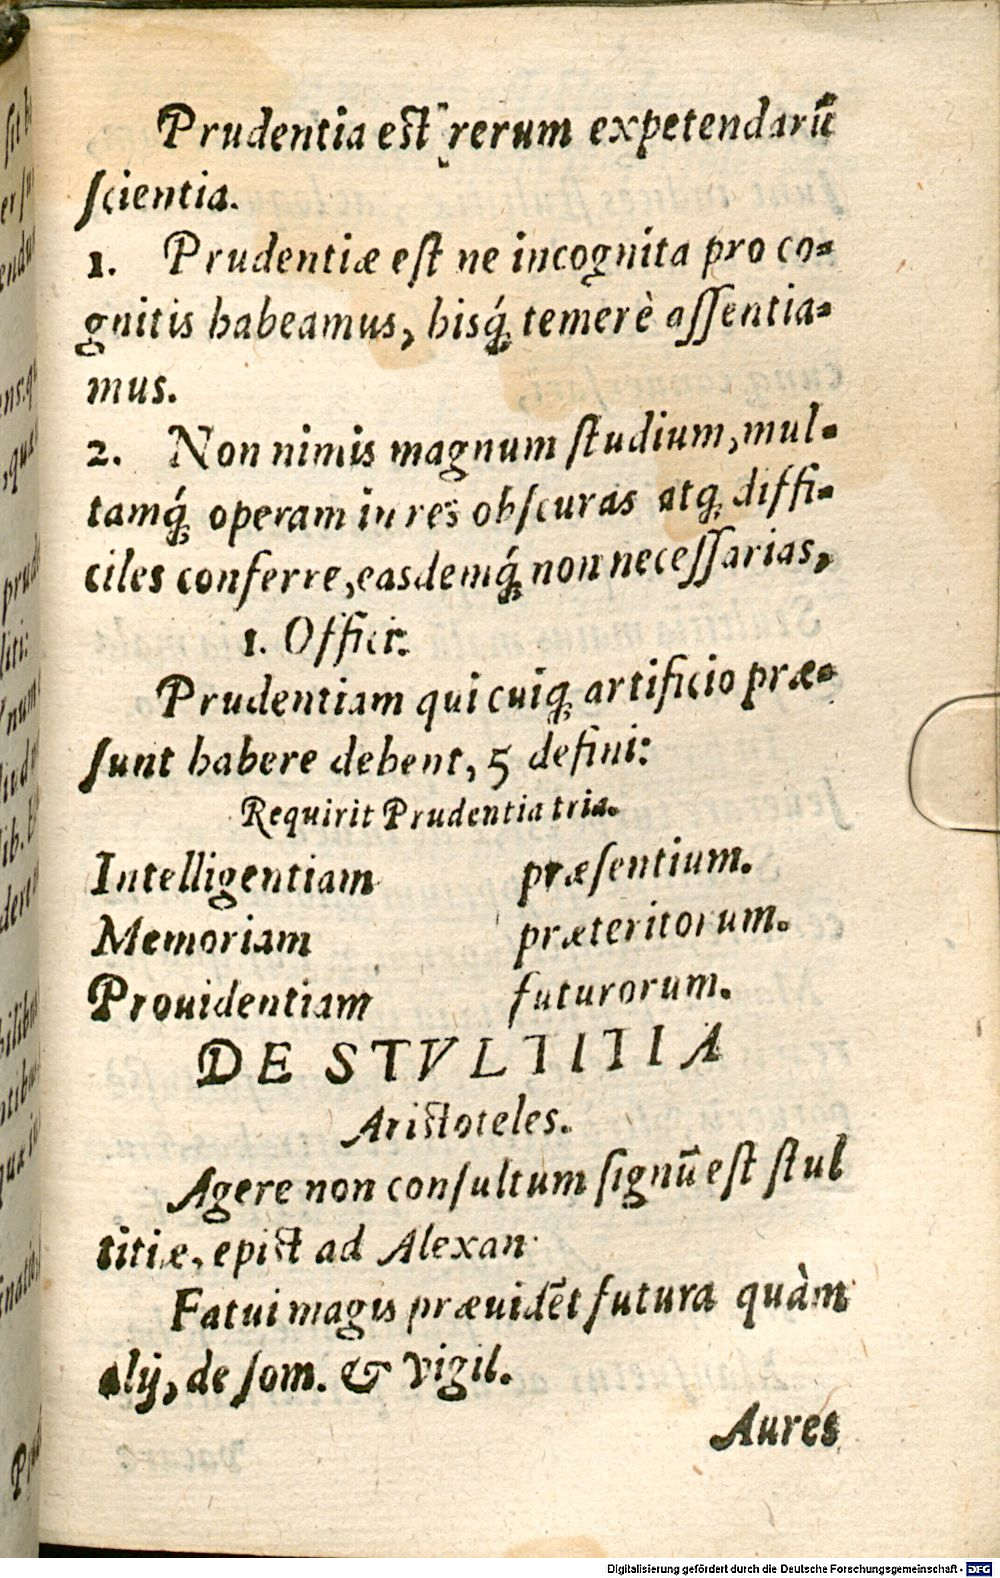 Prudentia est rerum expetendarū
ſcientia.
1. Prudentiæ eſt ne incognita pro co-
gnitis habeamus, hisq́; temerè aſſentia-
mus.
2. Non nimis magnum ſtudium, mul-
tamq́; operam in res obſcuras atq; diffi-
ciles conferre, easdemq́; non neceſſarias,
1. Offic:
Prudentiam qui cuiq; artificio præ-
ſunt habere debent, 5 defini:
Requirit Prudentia tria.
Intelligentiam præſentium.
Memoriam præteritorum.
Prouidentiam futurorum.
DE STVLTITIA
Ariſtoteles.
Agere non conſultum ſignū eſt ſtul
titiæ, epiſt ad Alexan
Fatui magis præuidēt futura quàm
alij, de ſom. & vigil.
Aures
Digitalisierung gefördert durch die Deutsche Forschungsgemeinschaft - DFG